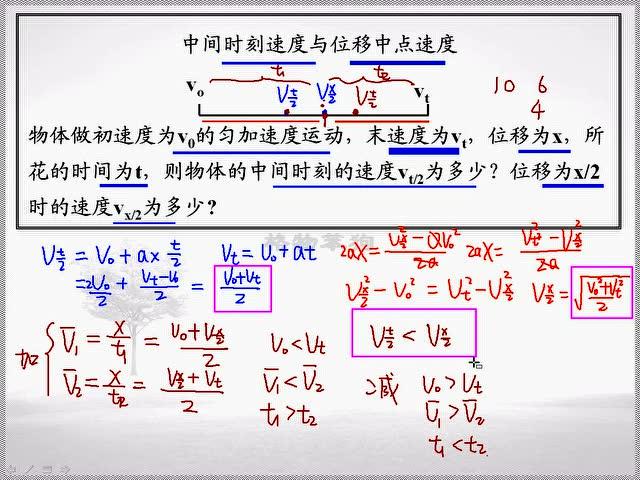 中间时刻速度与位移中点速度
t₁ t₂
v₀ V_{t/2} V_{x/2} V_{t/2} v_t
10 6
4
物体做初速度为v₀的匀加速度运动，末速度为v_t，位移为x，所
花的时间为t，则物体的中间时刻的速度v_{t/2}为多少？位移为x/2
时的速度v_{x/2}为多少？
V_{t/2} = V₀ + a × t/2 V_t = V₀ + at 2aX = (V_{x/2}² − V₀²)/2a 2aX = (V_t² − V_{x/2}²)/2a
= 2V₀/2 + (V_t − V₀)/2 = (V₀+V_t)/2 V_{x/2}² − V₀² = V_t² − V_{x/2}² V_{x/2} = √((V₀²+V_t²)/2)
加 V̄₁ = x/t₁ = (V₀+V_{x/2})/2 V₀ < V_t V_{t/2} < V_{x/2}
V̄₂ = x/t₂ = (V_{x/2}+V_t)/2 V̄₁ < V̄₂ 减 V₀ > V_t
t₁ > t₂ V̄₁ > V̄₂
t₁ < t₂